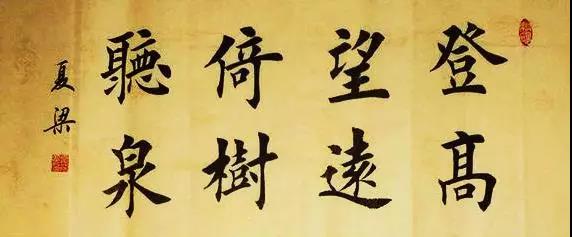 登高
望遠
倚樹
聽泉
夏梁